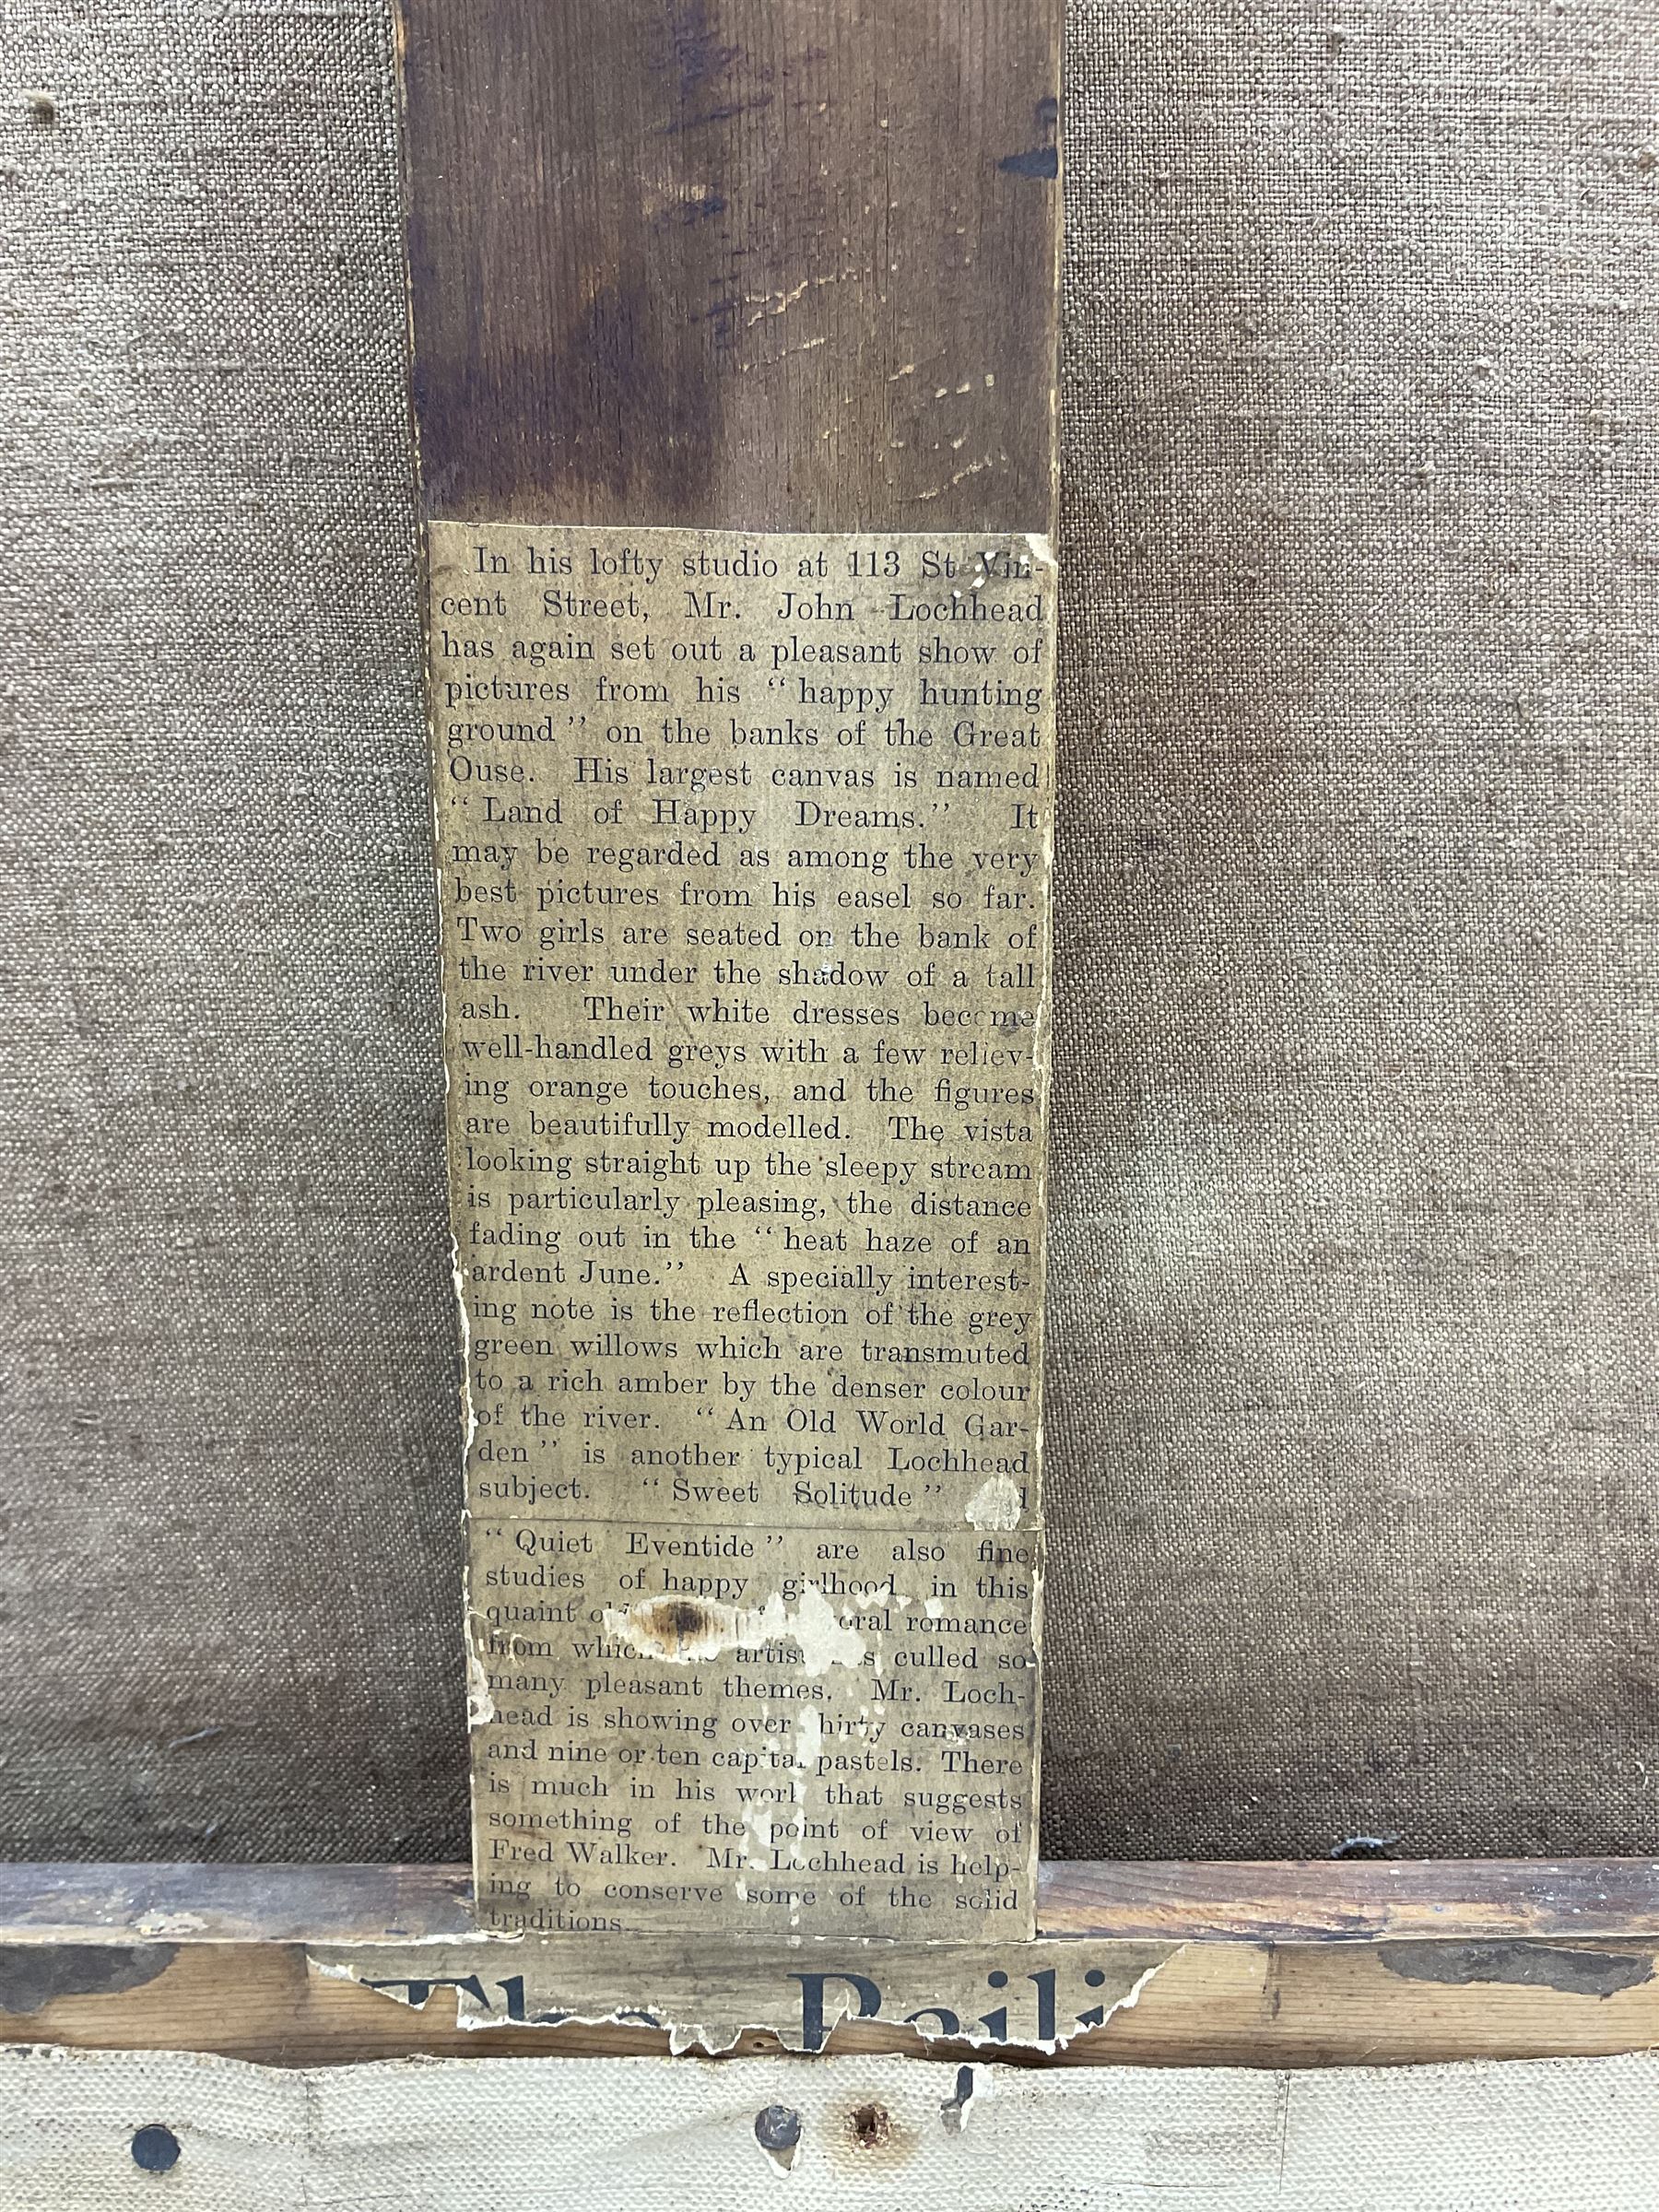 In his lofty studio at 113 St Vin-
cent Street, Mr. John Lochhead
has again set out a pleasant show of
pictures from his “ happy hunting
ground ” on the banks of the Great
Ouse. His largest canvas is named
“ Land of Happy Dreams.” It
may be regarded as among the very
best pictures from his easel so far.
Two girls are seated on the bank of
the river under the shadow of a tall
ash. Their white dresses become
well-handled greys with a few reliev-
ing orange touches, and the figures
are beautifully modelled. The vista
looking straight up the sleepy stream
is particularly pleasing, the distance
fading out in the “ heat haze of an
ardent June.” A specially interest-
ing note is the reflection of the grey
green willows which are transmuted
to a rich amber by the denser colour
of the river. “ An Old World Gar-
den ” is another typical Lochhead
subject. “ Sweet Solitude ”
“ Quiet Eventide ” are also fine
studies of happy girlhood in this
quaint romance
from which artist culled so
many pleasant themes. Mr. Loch-
head is showing over canvases
and nine or ten capital pastels. There
is much in his work that suggests
something of the point of view of
Fred Walker. Mr. Lochhead is help-
ing to conserve some of the solid
traditions.
The